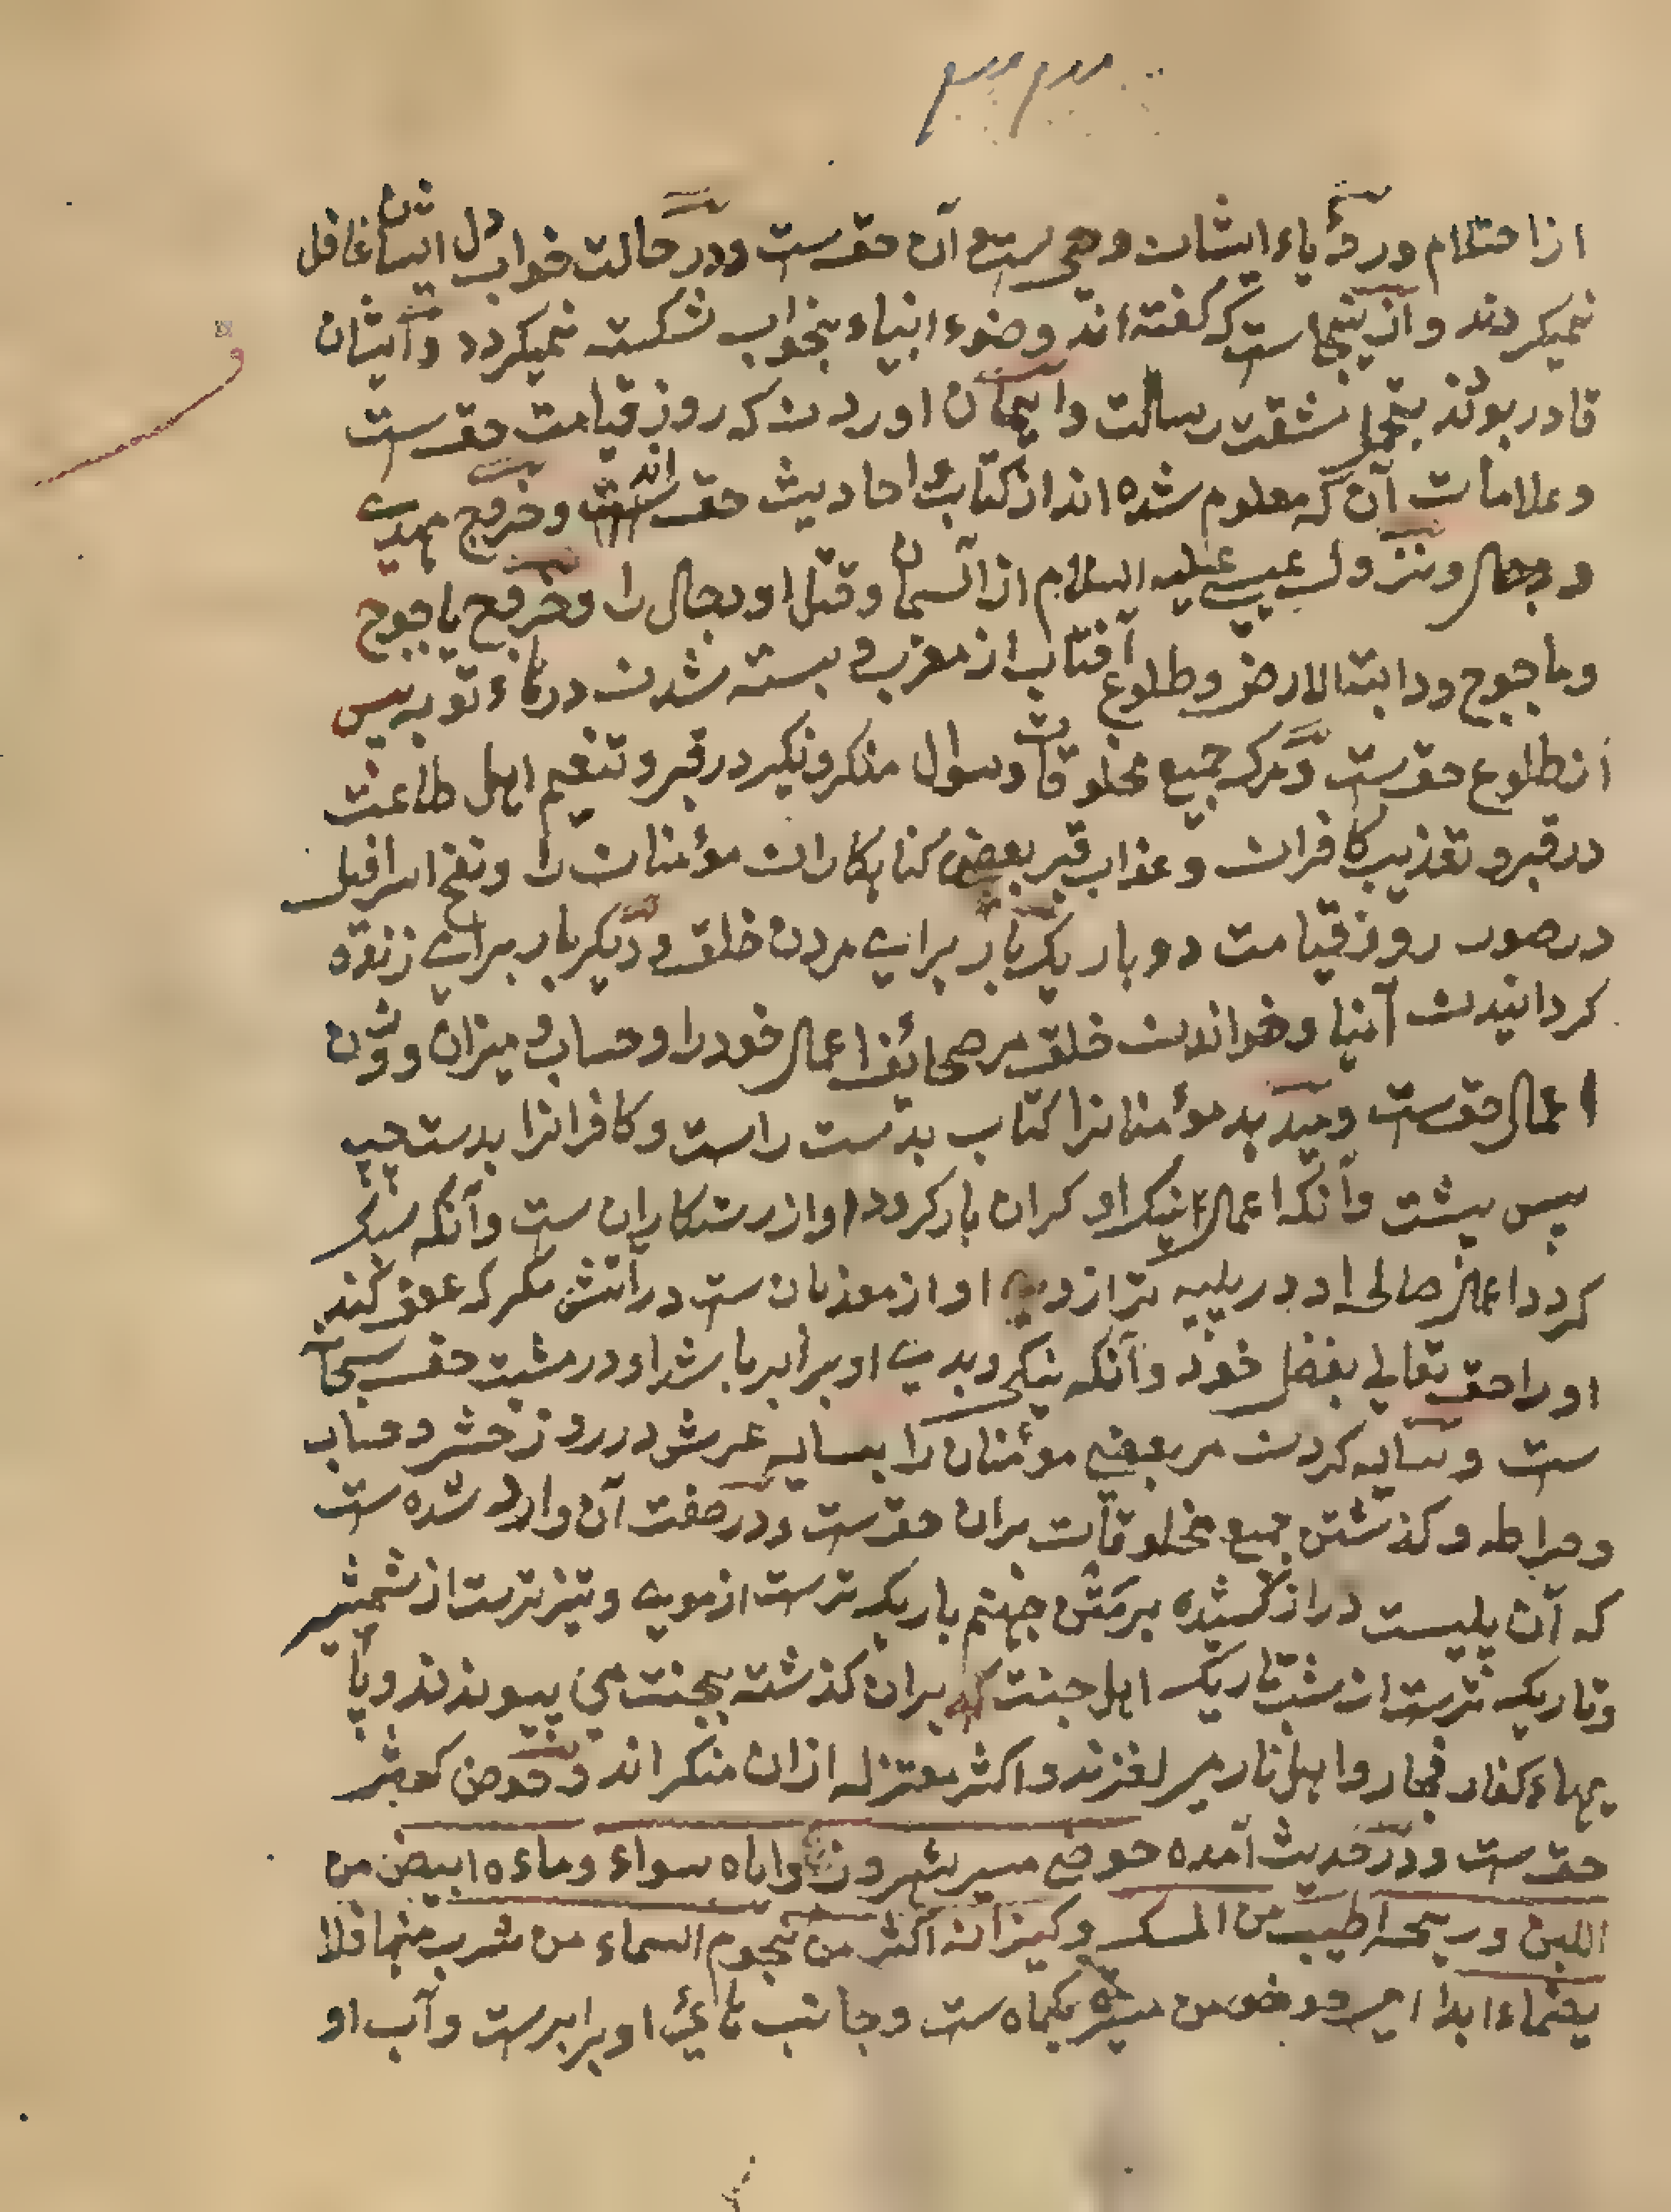 از احتلام ورؤیاء ایشان وحی ست وآن حق ست ودر حالت خواب دل ایشان غافل
نمیکردند وازینجاست که کفته اند وضوء انبیاء بخواب شکسته نمیکردد وایشان
قادر بودند بتحمل مشقت رسالت وایمان اوردن که روز قیامت حق ست
وعلامات آن که معلوم شده اند از کتاب واحادیث حق اند وخروج مهدی
ودجال ونزول عیسی علیه السلام از آسمان وقتل او دجال را وخروج یاجوج
وماجوج ودابة الارض وطلوع آفتاب از مغرب و بسته شدن درهاء توبه پس
از طلوع حق ست ومرک جمیع مخلوقات وسوال منکر ونکیر در قبر وتنعیم اهل طاعت
در قبر وتعذیب کافران وعذاب قبر بعضی کناهکاران مؤمنان را ونفخ اسرافیل
در صور روز قیامت دو بار یکبار برای مردن خلق ودیکر بار برای زنده
کردانیدن آنها وخواندن خلق مر صحائف اعمال خود را وحساب ومیزان ووزن
اعمال حق ست ومیدهد مؤمنانرا کتاب بدست راست وکافرانرا بدست چپ
پس پشت وآنکه اعمال نیک او کران بار کردد او از رستکاران ست وآنکه سبک
کردد اعمال صالحه او در پلیه ترازو او از معذبان ست در آتش مکر که عفو کند
او را حق تعالی بفضل خود وآنکه نیکی وبدی او برابر باشد او در مشیت حق سبحانه
ست وسایه کردن مر بعضی مؤمنان را بسایه عرش در روز حشر وحساب
وصراط وکذشتن جمیع مخلوقات بران حق ست ودر صفت آن وارد شده ست
که آن پلیست دراز کشیده بر متن جهنم باریک ترست از موی وتیزترست از شمشیر
وتاریک ترست از شب تاریک اهل جنت که بران کذشته بجنت می پیوندند وپا
یهاء کفار فجار واهل نار میلغزند واکثر معتزله ازان منکر اند وحوض کوثر
حق ست ودر حدیث آمده حوضی مسیر شهر وزوایاه سواء وماءه ابیض من
اللبن وریحه اطیب من المسک وکیزانه اکثر من نجوم السماء من شرب منها فلا
یظماء ابدا حوض من مسیره یکماه ست وجانب هائی او برابرست وآب او